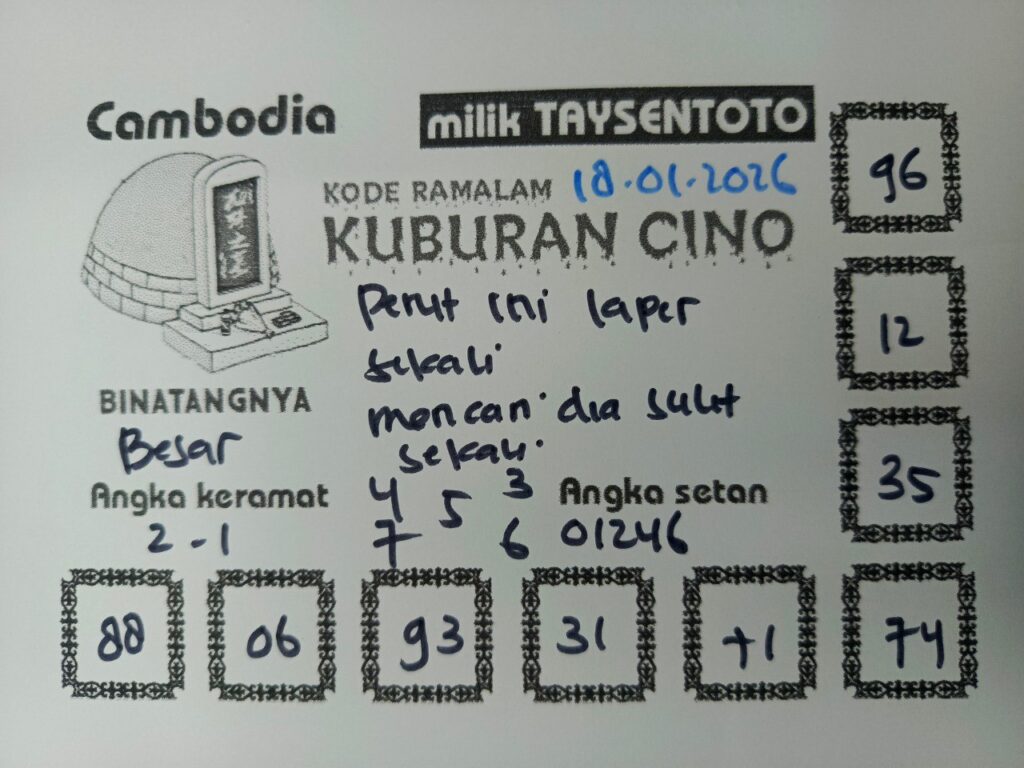 Cambodia
milik TAYSENTOTO
KODE RAMALAM 18.01.2026
KUBURAN CINO
Perut ini laper
sekali
mencari dia sulit
sekali.
BINATANGNYA
Besar
Angka keramat
2-1
4 5 3
7 6
Angka setan
01246
96
12
35
88 06 93 31 71 74